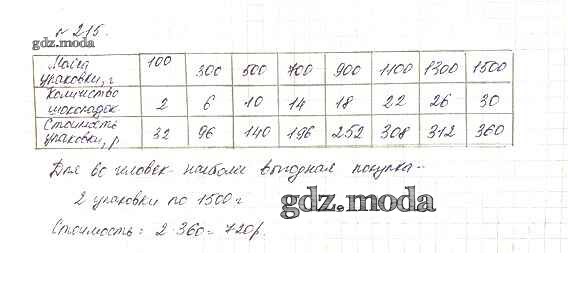 № 215.
gdz.moda
Масса упаковки, г 100 300 500 700 900 1100 1300 1500
Количество шоколадок 2 6 10 14 18 22 26 30
Стоимость упаковки, р 32 96 140 196 252 308 312 360
Для 60 человек наиболи выгодная покупка -
2 упаковки по 1500 г
gdz.moda
Стоимость: 2·360 = 720р.